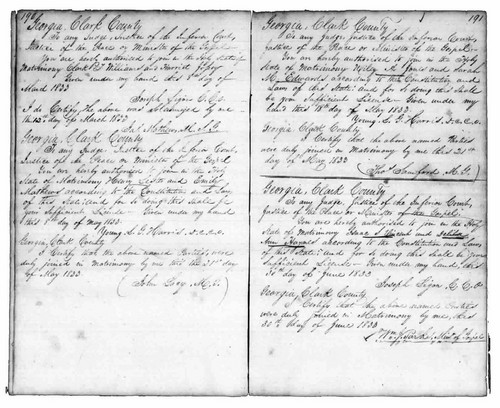 190
Georgia, Clark County
To any Judge, Justice of the Inferior Court,
Justice of the Peace or Minister of the Gospel
You are hereby authorized to join in the Holy State of
Matrimony Clark R. Williams & Harriet
Given under my hand this day of
March 1833
Joseph Ligon C.C.O.
I do Certify the above was Solemnized by me
this 13th day of March 1833
Georgia, Clark County
To any Judge, Justice of the Inferior Court,
Justice of the Peace or Minister of the Gospel
You are hereby authorized to join in the Holy
State of Matrimony Henry and
Mathews according to the Constitution and Laws
of this State and for so doing this shall be
your Sufficient License Given under my hand
this 1st day of May 1833
Young L. G. Harris D.C.C.O.
Georgia, Clark County
I Certify that the above named Parties were
duly joined in Matrimony by me this the 21st day
of May 1833
John M.G.
191
Georgia, Clark County
To any Judge, Justice of the Inferior Court,
Justice of the Peace or Minister of the Gospel
You are hereby authorized to join in the Holy
State of Matrimony and Sarah
M. Edwards according to the Constitution and
Laws of this State and for so doing this shall
be your Sufficient License Given under my
hand this 18th day of May 1833
Young L. G. Harris D.C.C.O.
Georgia Clark County
I Certify that the above named Parties
were duly joined in Matrimony by me this 21st
day of May 1833
Thos Samford M.G.
Georgia, Clark County
To any Judge, Justice of the Inferior Court,
Justice of the Peace or Minister of the Gospel,
You are hereby authorized to join in the Holy
State of Matrimony Isaac S. Vincent and
Ann according to the Constitution and Laws
of this State and for so doing this shall be your
Sufficient License Given under my hand, this
day of June 1833
Joseph Ligon C.C.O.
Georgia, Clark County
I Certify that the above named Parties
were duly joined in Matrimony by me, this
30th day of June 1833
Wm. J. Parks, Min. of Gospel